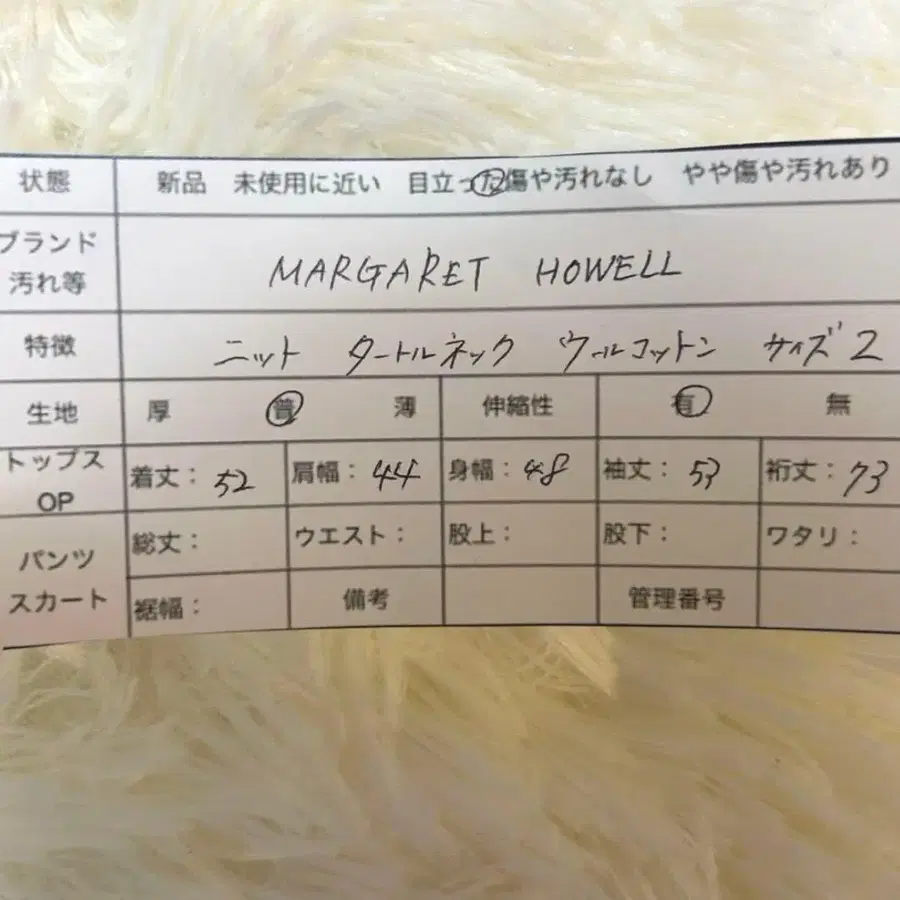 状態 新品 未使用に近い 目立った傷や汚れなし やや傷や汚れあり
ブランド
汚れ等 MARGARET HOWELL
特徴 ニット タートルネック ウールコットン サイズ2
生地 厚 普 薄 伸縮性 有 無
トップス
OP 着丈: 52 肩幅: 44 身幅: 48 袖丈: 53 裄丈: 73
パンツ
スカート 総丈: ウエスト: 股上: 股下: ワタリ:
裾幅: 備考 管理番号